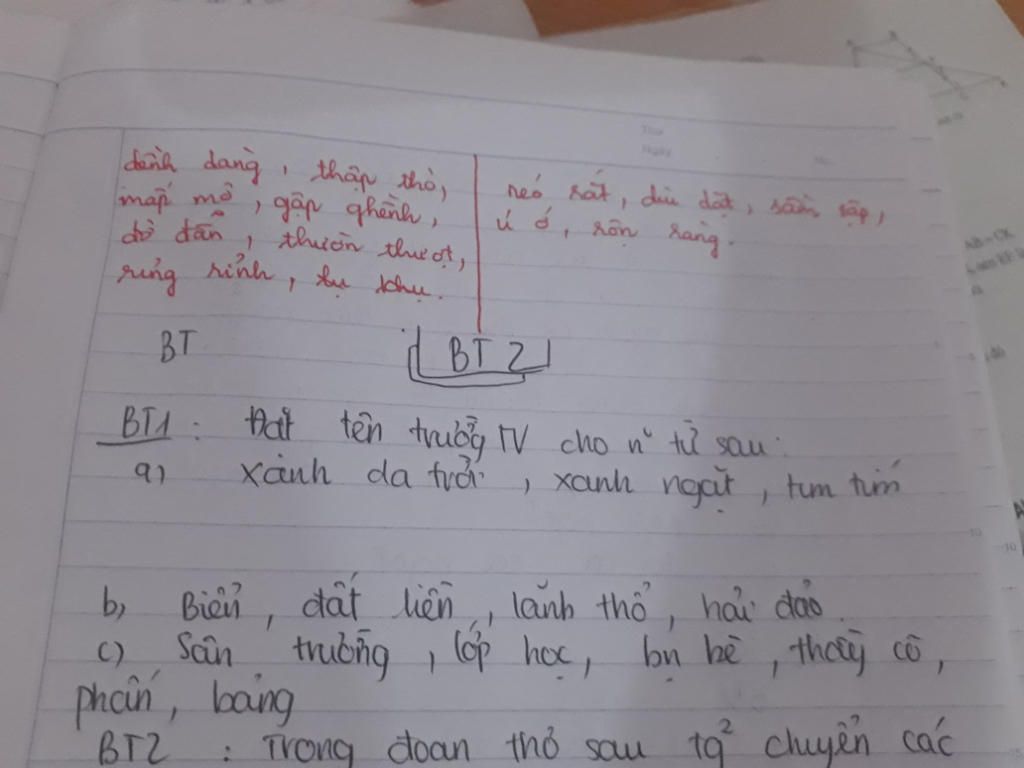 dềnh dàng, thập thò,
mấp mô, gập ghềnh,
đờ đẫn, thườn thượt,
rủng rỉnh, lụ khụ.
réo rắt, dìu dặt, sầm sập,
ú ớ, rộn ràng.
BT
BT 2
BT1 : Đặt tên trường TV cho n² từ sau:
a) xanh da trời, xanh ngắt, tim tím
b) Biển, đất liền, lãnh thổ, hải đảo.
c) Sân trường, lớp học, bn bè, thầy cô,
phấn, bảng
BT2 : Trong đoạn thơ sau tg² chuyển các
Thứ
Ngày
No.